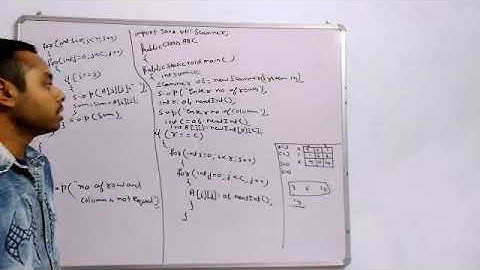 import Java util Scanner;
{
public class ABC
{
public static void main( )
int sum=0;
Scanner ob = new Scanner(System.in)
S.o.p("Enter no of rows")
int r = ob.nextInt();
S.o.p("Enter no of column");
int c = ob.nextInt();
int A[][]=new int[r][c];
if (r==c)
{
for(int i=0; i<r; i++)
{
for(int j=0; j<c, j++)
{
A[i][j]=ob.nextInt();
}
}
for(int i=0; i<r, i++)
{
for(int j=0, j<c, j++)
{
if (i==j)
{
S.o.p(A[i][j]+" ")
sum=sum+A[i][j]
}
S.o.p(sum)
S.o.p("no of row and
column is not equal")